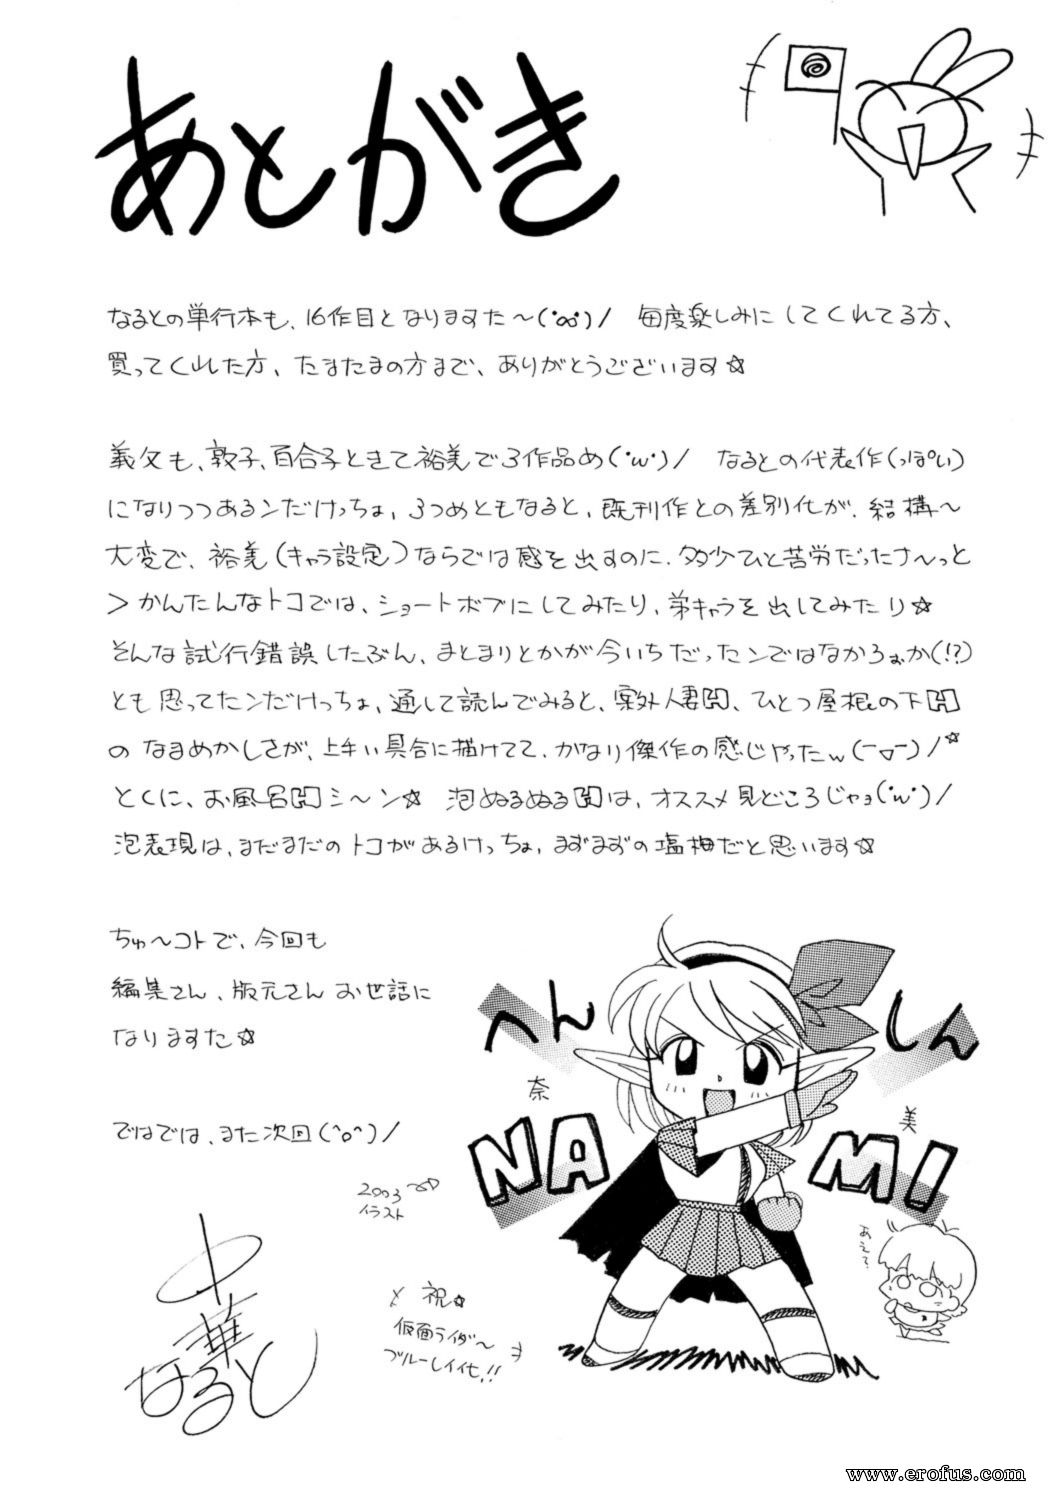 あとがき
なるとの単行本も、16作目となりますた～(･∞･)/　毎度楽しみにしてくれてる方、
買ってくれた方、たまたまの方まで、ありがとうございます☆
義父も、敦子、百合子ときて裕美で3作品め(･w･)/　なるとの代表作(っぽい)
になりつつあるンだけっちょ、3つめともなると、既刊作との差別化が、結構～
大変で、裕美(キャラ設定)ならでは感を出すのに、多少ひと苦労だったナ～っと
>かんたんなトコでは、ショートボブにしてみたり、弟キャラを出してみたり☆
そんな試行錯誤したぶん、まとまりとかが今いちだったンではなかろぉか(!?)
とも思ってたンだけっちょ、通して読んでみると、案外人妻H、ひとつ屋根の下H
のなまめかしさが、上手い具合に描けてて、かなり傑作の感じやったw(￣▽￣)/*
とくに、お風呂Hシ～ン☆　泡ぬるぬるHは、オススメ見どころじゃョ(･w･)/
泡表現は、まだまだのトコがあるけっちょ、まずまずの塩梅だと思います☆
ちゅ～コトで、今回も
編集さん、版元さんお世話に
なりますた☆
ではでは、また次回(^o^)/
へんしん
奈美
NAMI
あえて?
2003
イラスト
祝☆
仮面ライダ～
ブルーレイ化!!
中華
なると
www.erofus.com